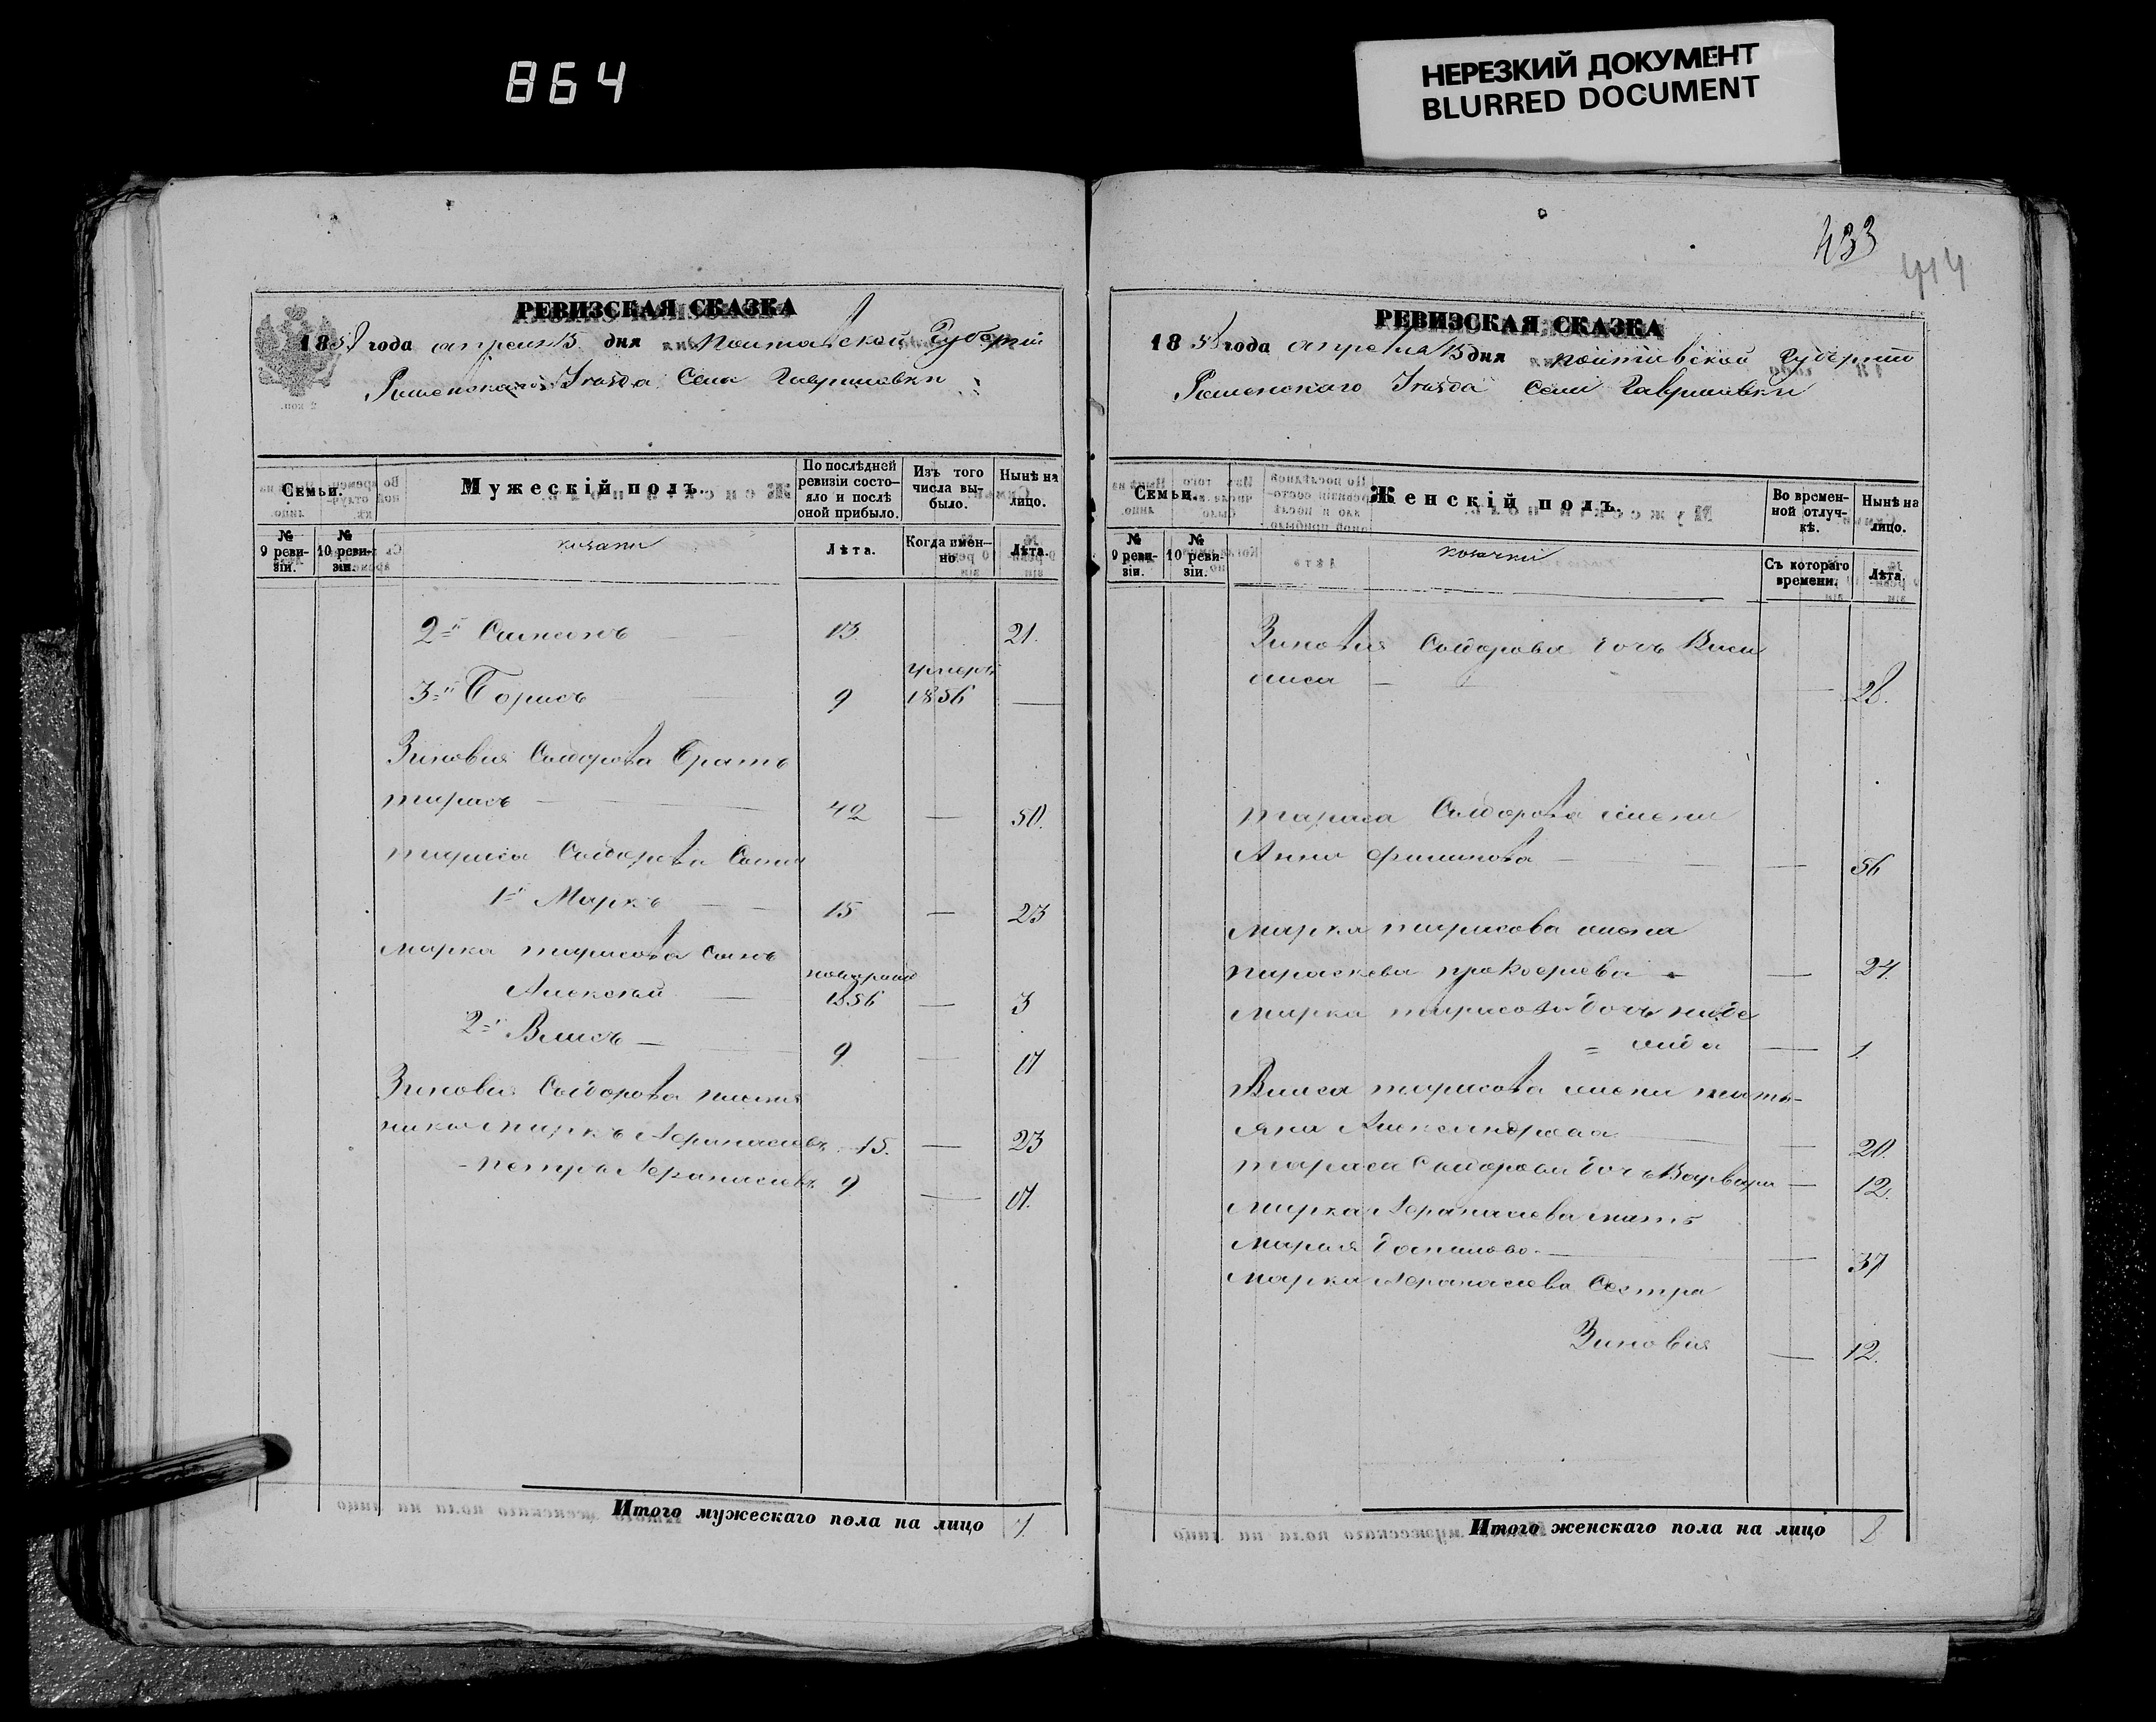 864
НЕРЕЗКИЙ ДОКУМЕНТ
BLURRED DOCUMENT
433
414
РЕВИЗСКАЯ СКАЗКА
1858 года апреля 15 дня Полтавской Губернии
Роменского Уезда Села Гавришовки
Семьи.
Мужескій полъ.
По послѣдней ревизіи состояло и послѣ оной прибыло.
Изъ того числа выбыло.
Нынѣ на лицо.
№ 9 ревизіи.
№ 10 ревизіи.
козаки
Лѣта.
Когда именно.
Лѣта.
2й Симонъ 13 21.
умеръ
3й Борисъ 9 1856 —
Зиновия Сидорова Братъ
тарасъ — 42 — 50.
тараса Сидорова Сыны
1й Маркъ 15 — 23
Марка тарасова Сынъ
Алексей 1856 — 3
2й Власъ — 9 — 17
Зиновия Сидорова племян
ники Маркъ Афанасиевъ 15. — 23
Петръ Афанасиевъ 9 — 17.
Итого мужескаго пола на лицо 7.
РЕВИЗСКАЯ СКАЗКА
1858 года апреля 15 дня полтавской Губернии
Роменского Уезда Села Гавришовки
Семьи.
Женскій полъ.
Во временной отлучкѣ.
Нынѣ на лицо.
№ 9 ревизіи.
№ 10 ревизіи.
козачки
Съ котораго времени.
Лѣта.
Зиновия Сидорова дочь Васи
лиса — 28.
тараса Сидорова жена
Анна — 56
Марка тарасова жена
параскева прокофиева — 24.
Марка тарасова дочь
— 1.
Власа тарасова жена тать-
яна Александрова — 20.
тараса Сидорова дочь Варвара — 12.
Марка Афанасиева мать
Мария — 37
Марка Афанасиева Сестра
Зиновия — 12.
Итого женскаго пола на лицо 8